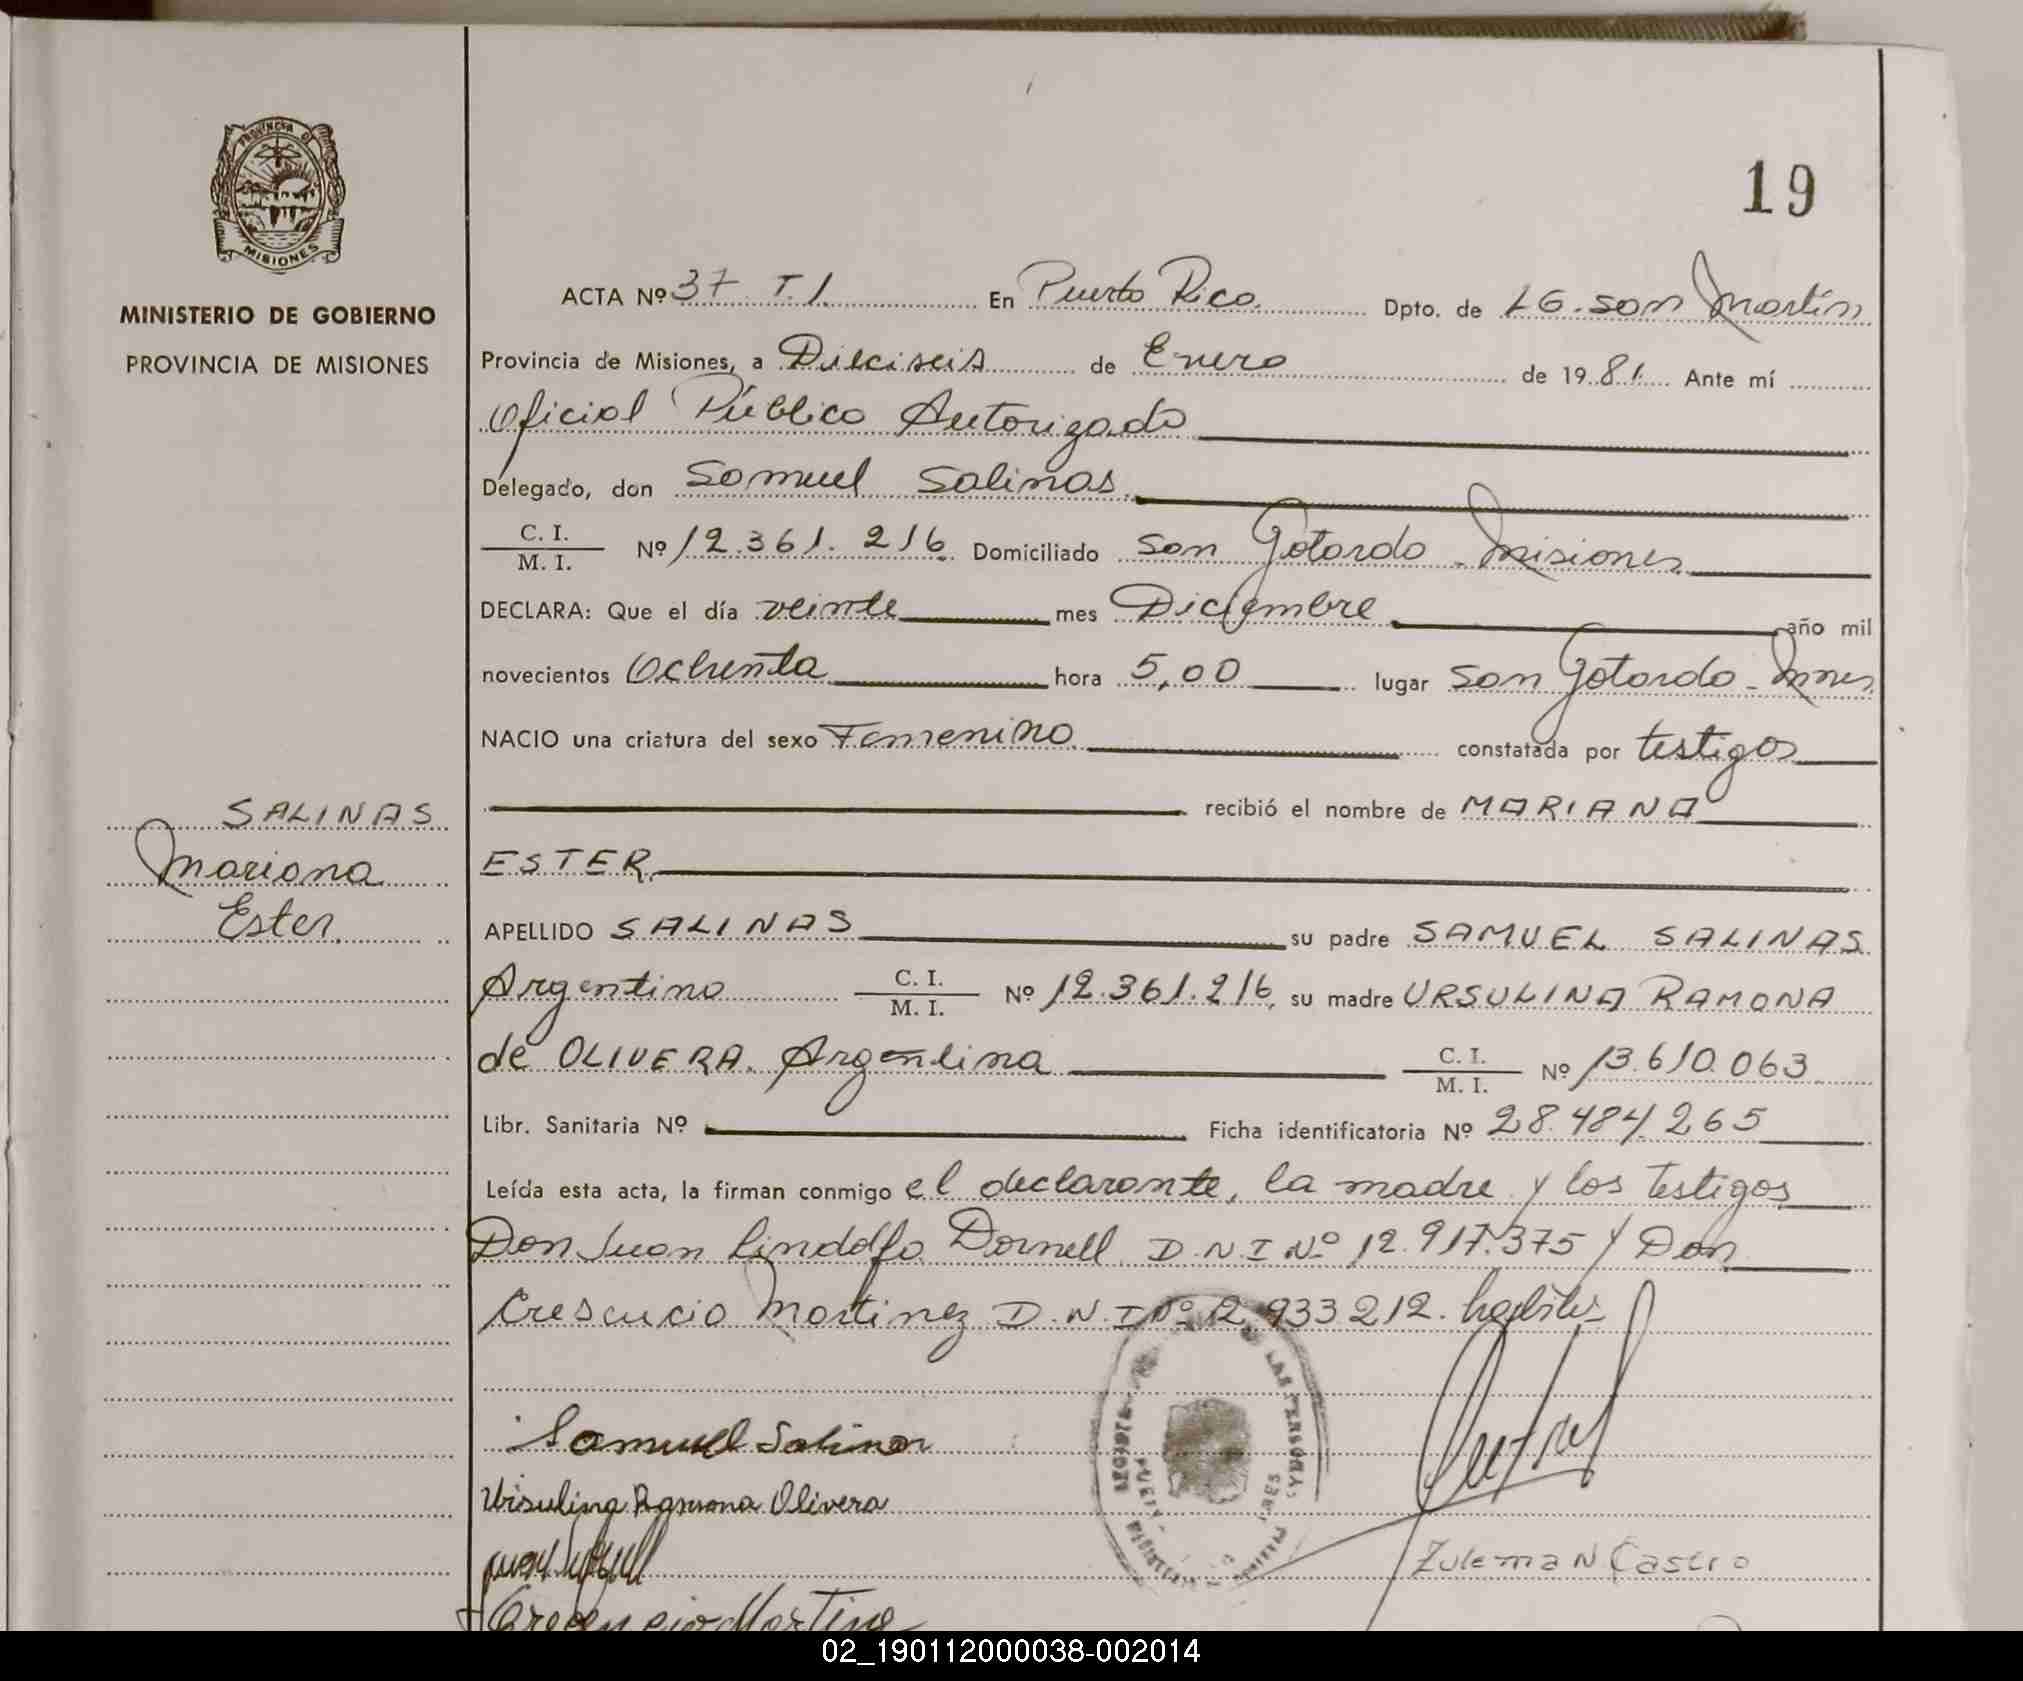 19
PROVINCIA DE
MISIONES
MINISTERIO DE GOBIERNO
PROVINCIA DE MISIONES
SALINAS
Mariana
Ester.
ACTA Nº 37 T.1. En Puerto Rico. Dpto. de LG. San Martín
Provincia de Misiones, a Dieciseis de Enero de 1981. Ante mí
Oficial Público Autorizado
Delegado, don Samuel Salinas.
C. I. / M. I. Nº 12.361.216 Domiciliado San Gotardo - Misiones
DECLARA: Que el día veinte mes Diciembre año mil
novecientos Ochenta hora 5,00 lugar San Gotardo - Mnes
NACIO una criatura del sexo Femenino constatada por testigos
recibió el nombre de MARIANA
ESTER
APELLIDO SALINAS su padre SAMUEL SALINAS
Argentino C. I. / M. I. Nº 12.361.216, su madre URSULINA RAMONA
de OLIVERA. Argentina C. I. / M. I. Nº 13.610.063
Libr. Sanitaria Nº Ficha identificatoria Nº 28.484.265
Leída esta acta, la firman conmigo el declarante, la madre y los testigos
Don Juan Lindolfo Dornell D.N.I Nº 12.917.375 y Don
Crescencio Martinez D.N.I Nº 12.933212. habiles
Samuel Salinas
Ursulina Ramona Olivera
Crecencio Martine
LAS PERSONAS
Zulema N Castro
02_190112000038-002014